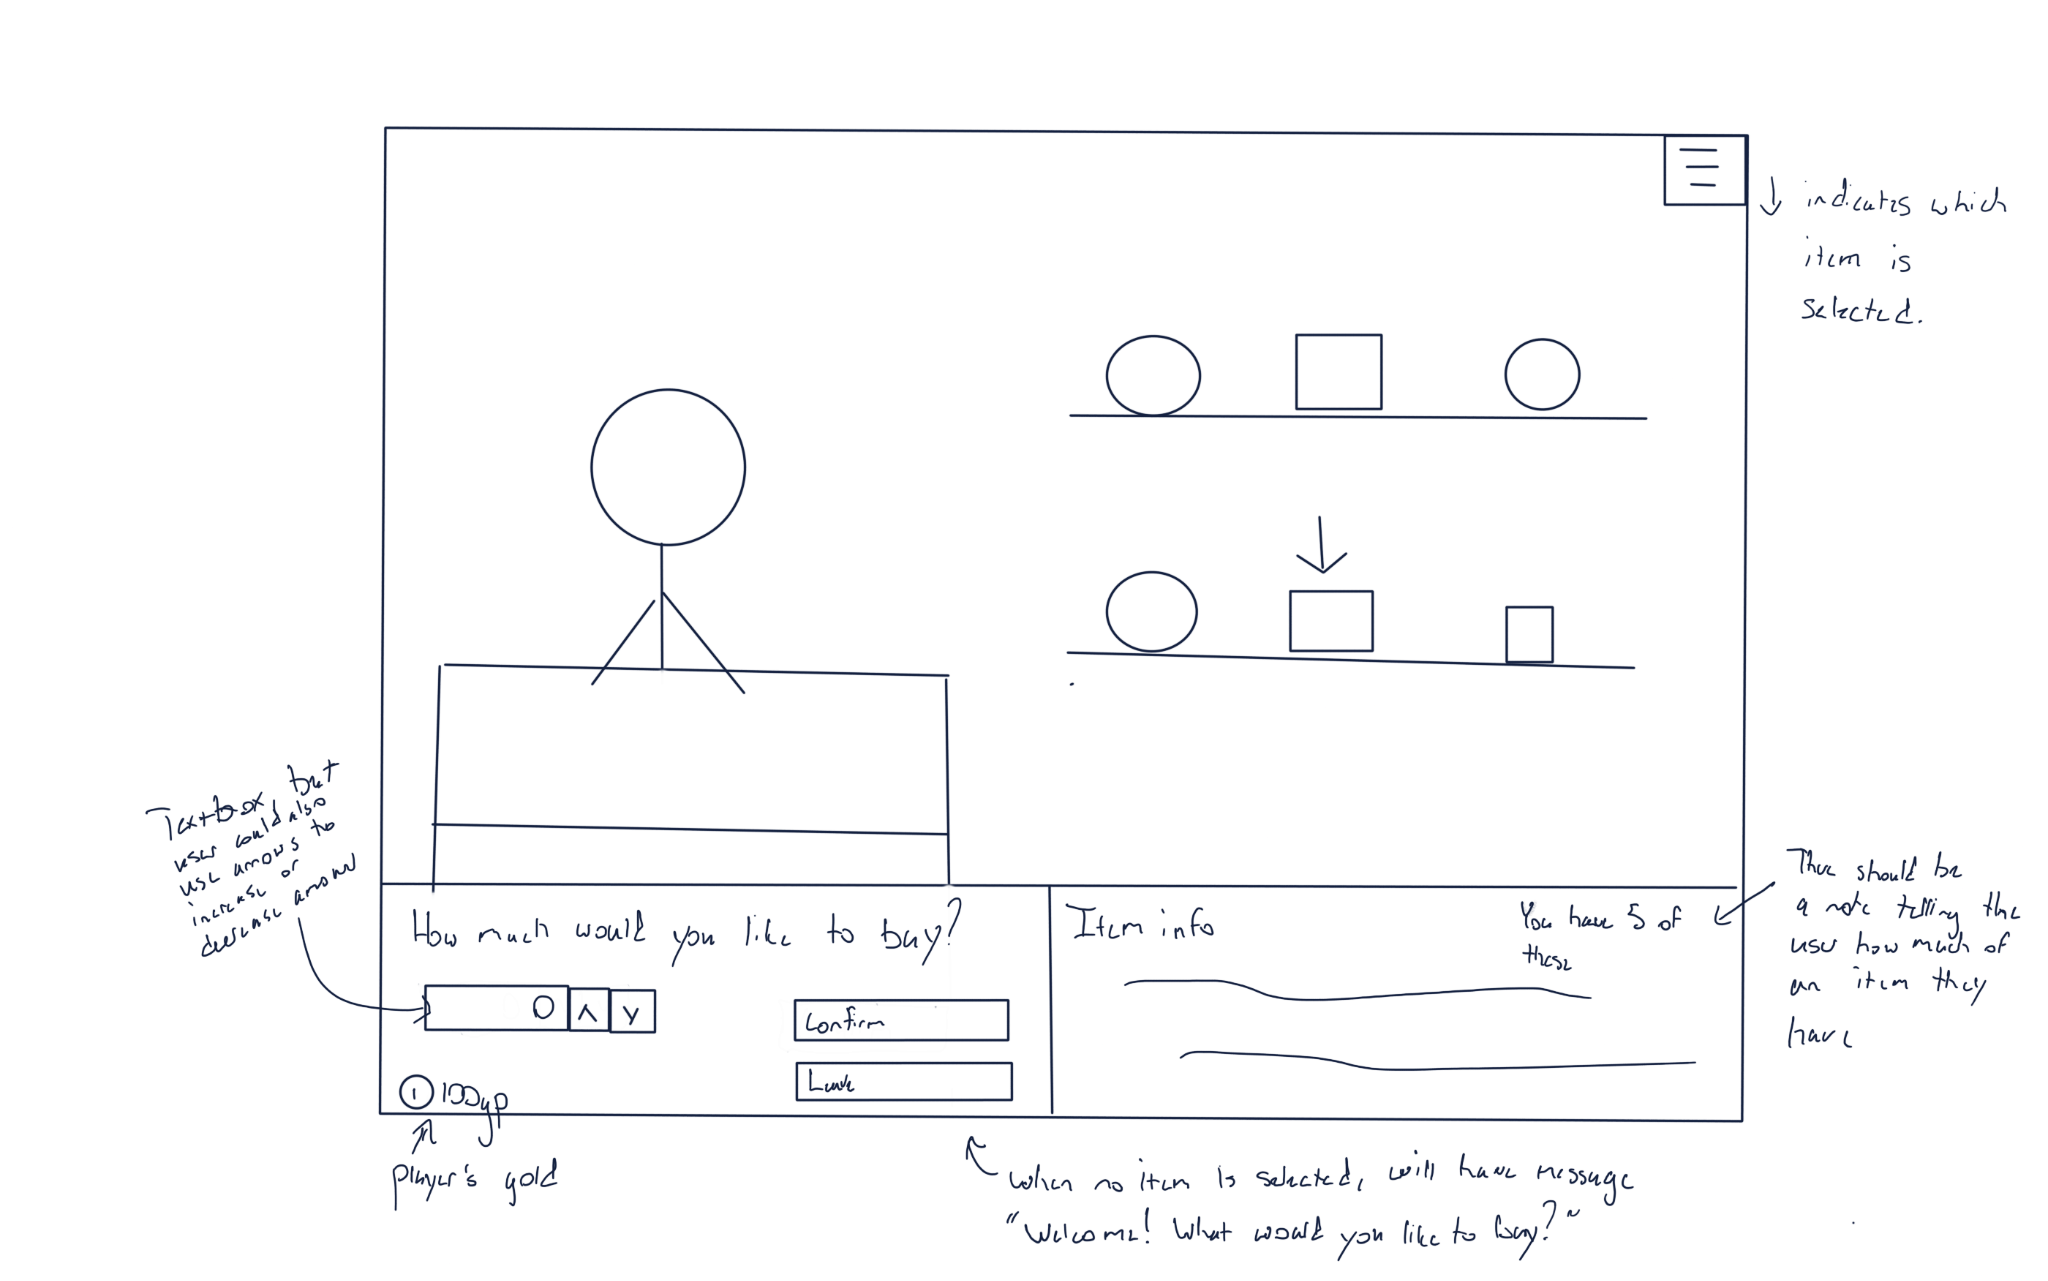 ↓ indicates which
item is
selected.
Textbox, but
user could also
use arrows to
increase or
decrease amount
How much would you like to buy?
0
Confirm
Leave
1 100gp
player's gold
Item info
You have 5 of
these
There should be
a note telling the
user how much of
an item they
have
When no item is selected, will have message
"Welcome! What would you like to buy?"